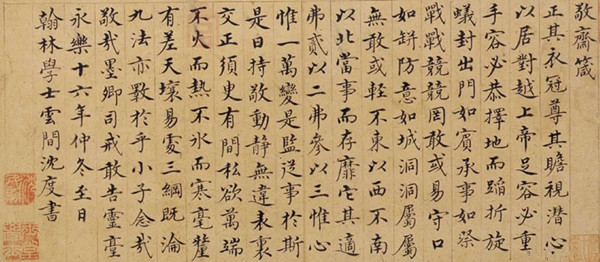 敬齋箴
正其衣冠尊其瞻視潜心
以居對越上帝足容必重
手容必恭擇地而蹈折旋
蟻封出門如賓承事如祭
戰戰兢兢罔敢或易守口
如缾防意如城洞洞屬屬
無敢或輕不東以西不南
以北當事而存靡它其適
弗貳以二弗參以三惟心
惟一萬變是監從事於斯
是曰持敬動靜無違表裏
交正須臾有間私欲萬端
不火而熱不氷而寒毫釐
有差天壤易處三綱既淪
九法亦斁於乎小子念哉
敬哉墨卿司戒敢告靈臺
永樂十六年仲冬至日
翰林學士雲間沈度書